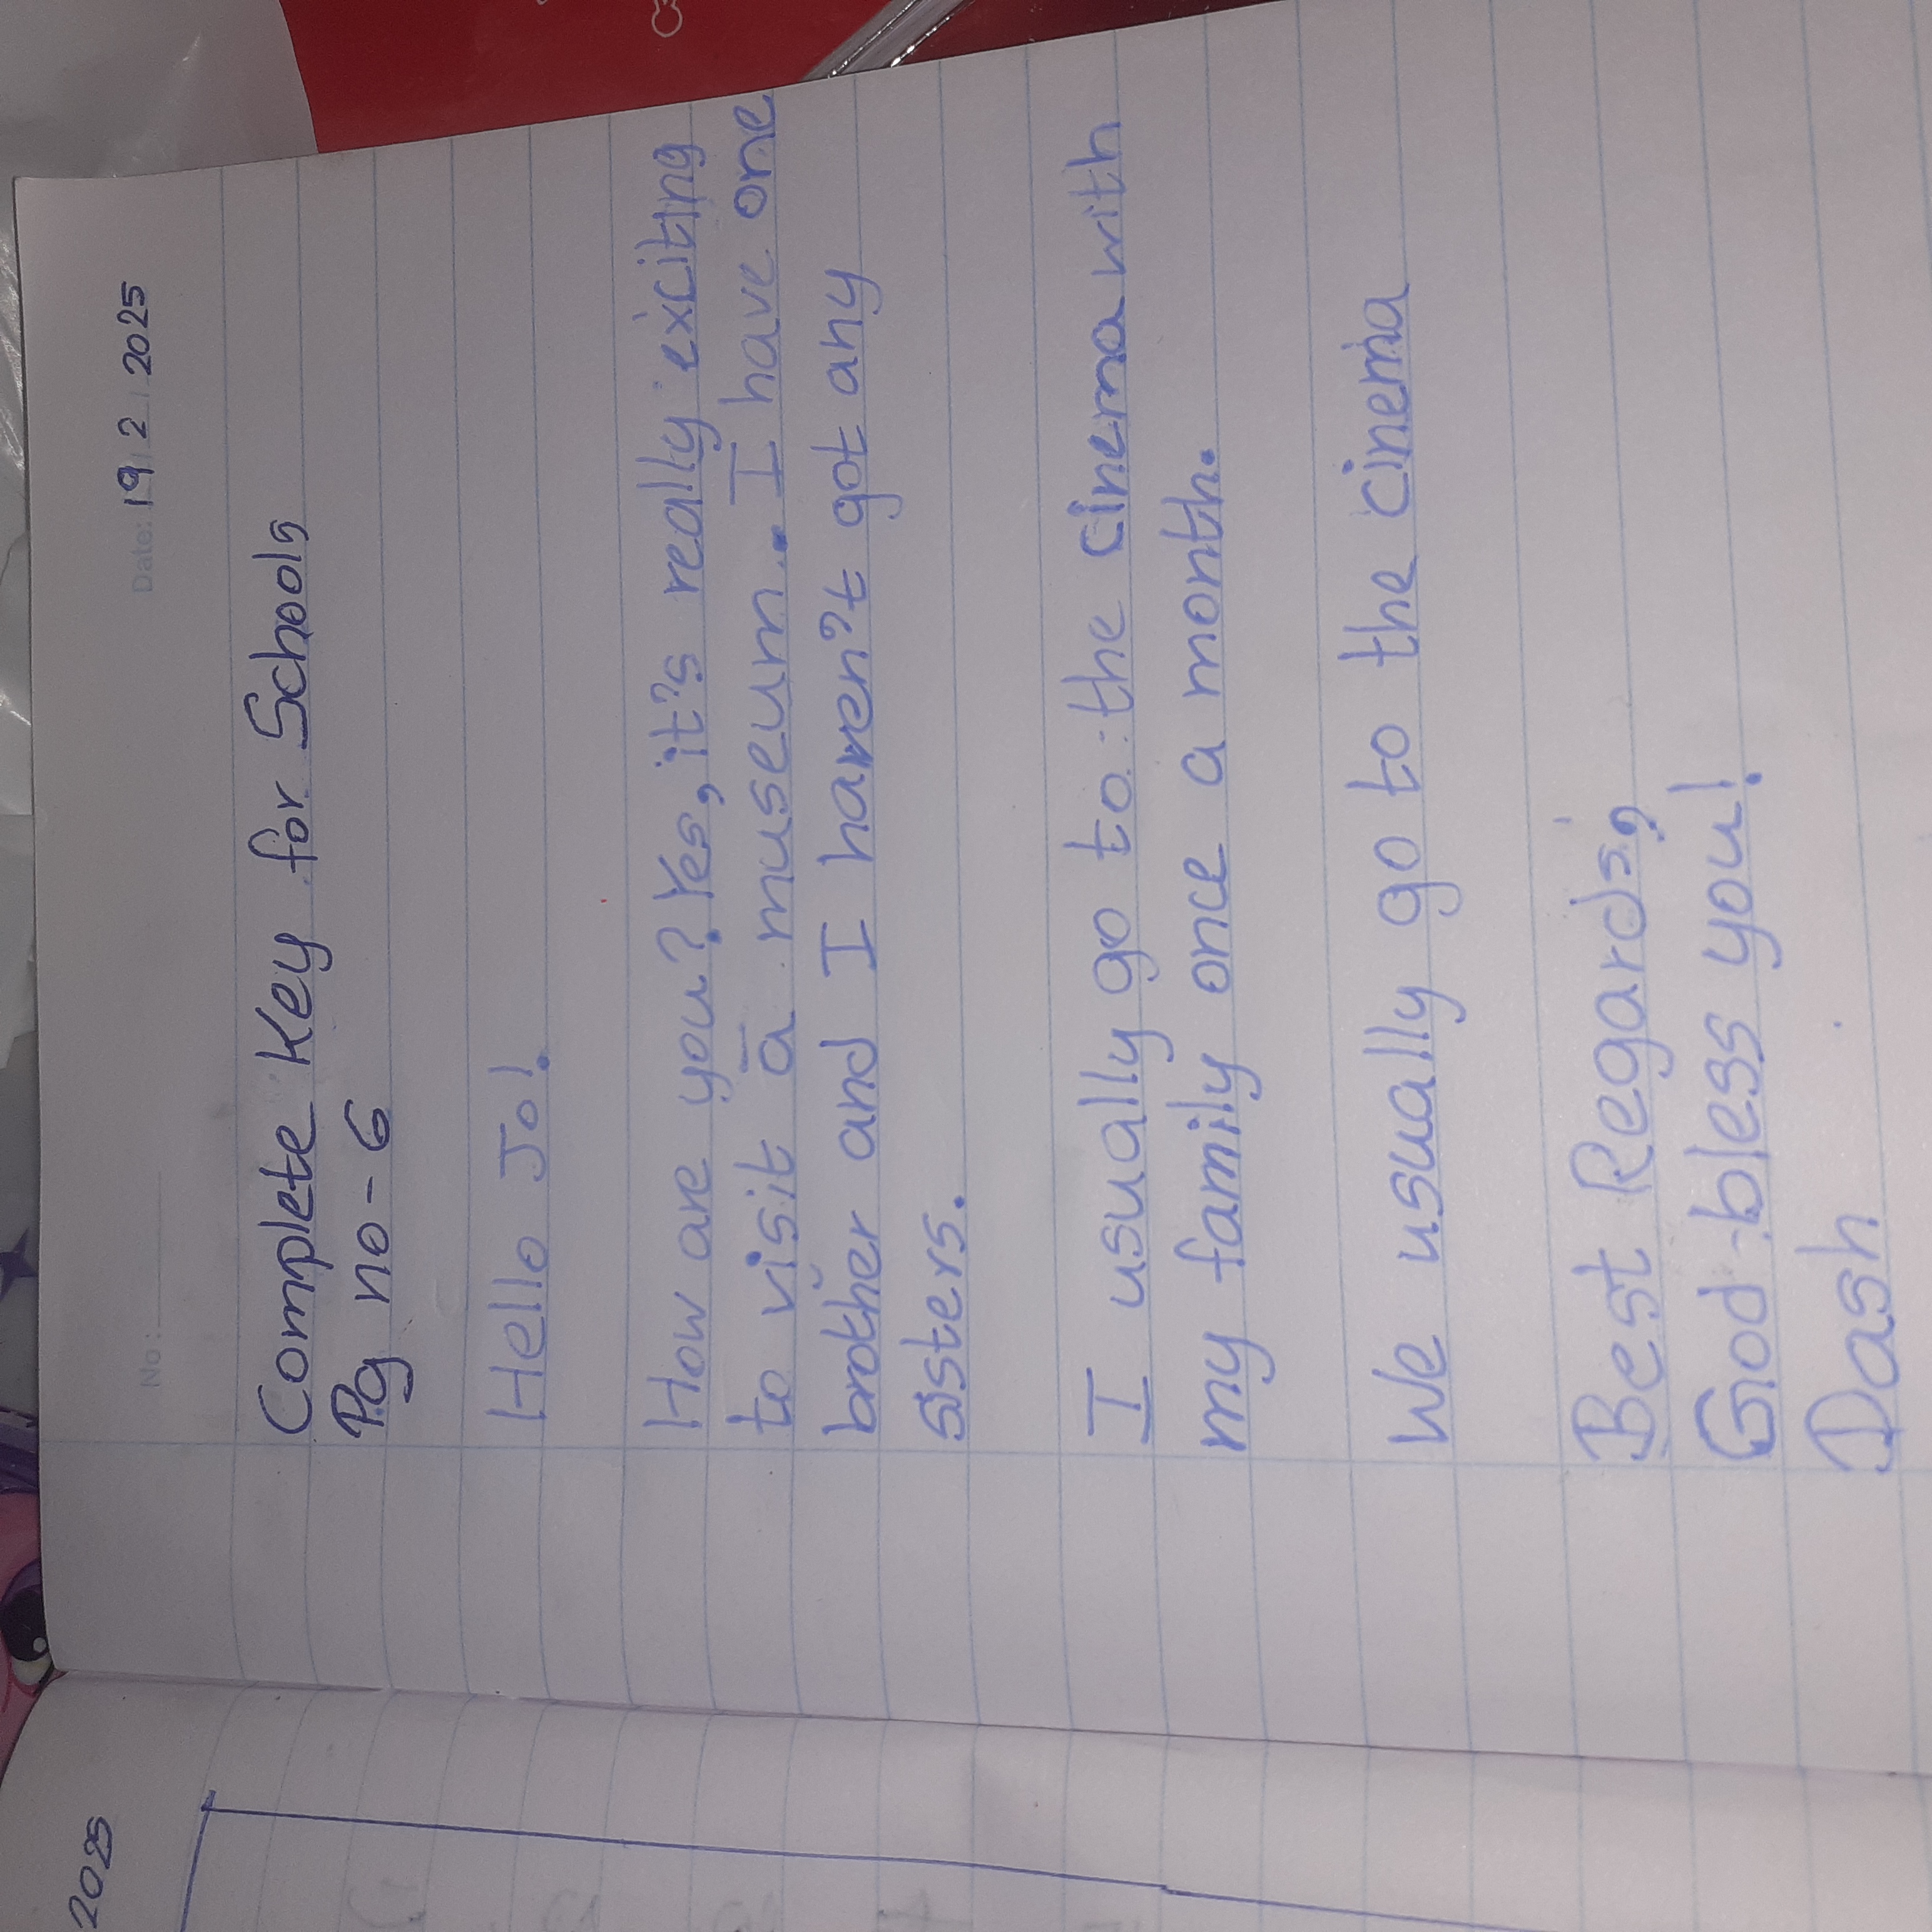 No:
Date: 19/2/2025
Complete Key for Schools
Pg no-6
Hello Jo!
How are you? Yes, it's really exciting
to visit a museum. I have one
brother and I haven't got any
sisters.
I usually go to the cinema with
my family once a month.
We usually go to the cinema
Best Regards,
God-bless you!
Dash
2025